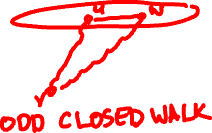 u v
r
ODD CLOSED WALK